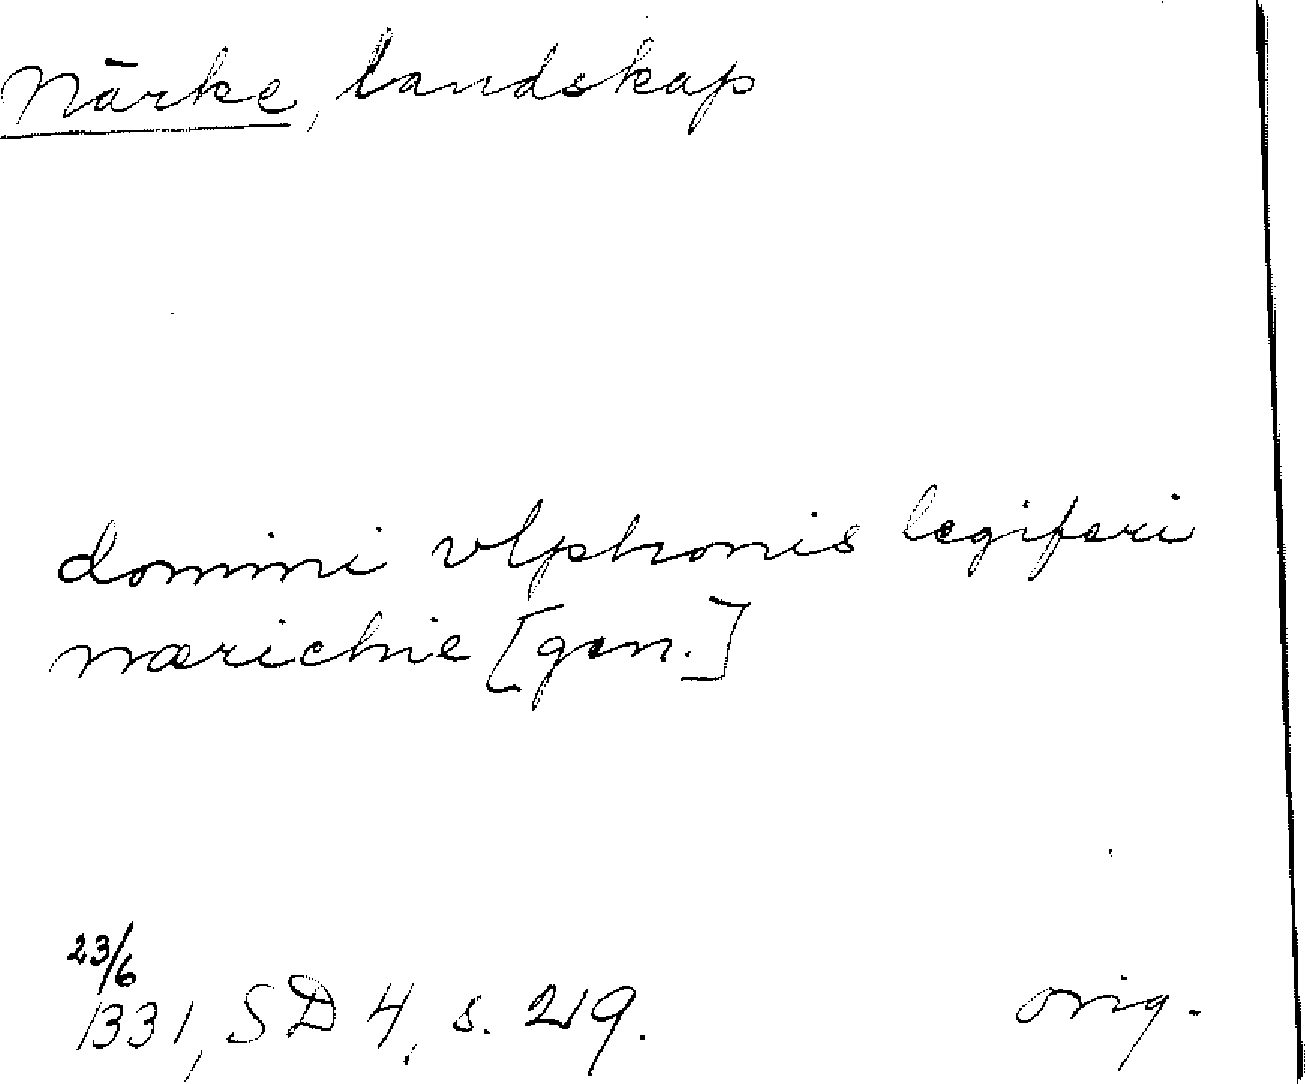 Närke, landskap
domini vlphonis legiferi
nærichie [gen.]
23/6
1331, SD 4, s. 219.
orig.